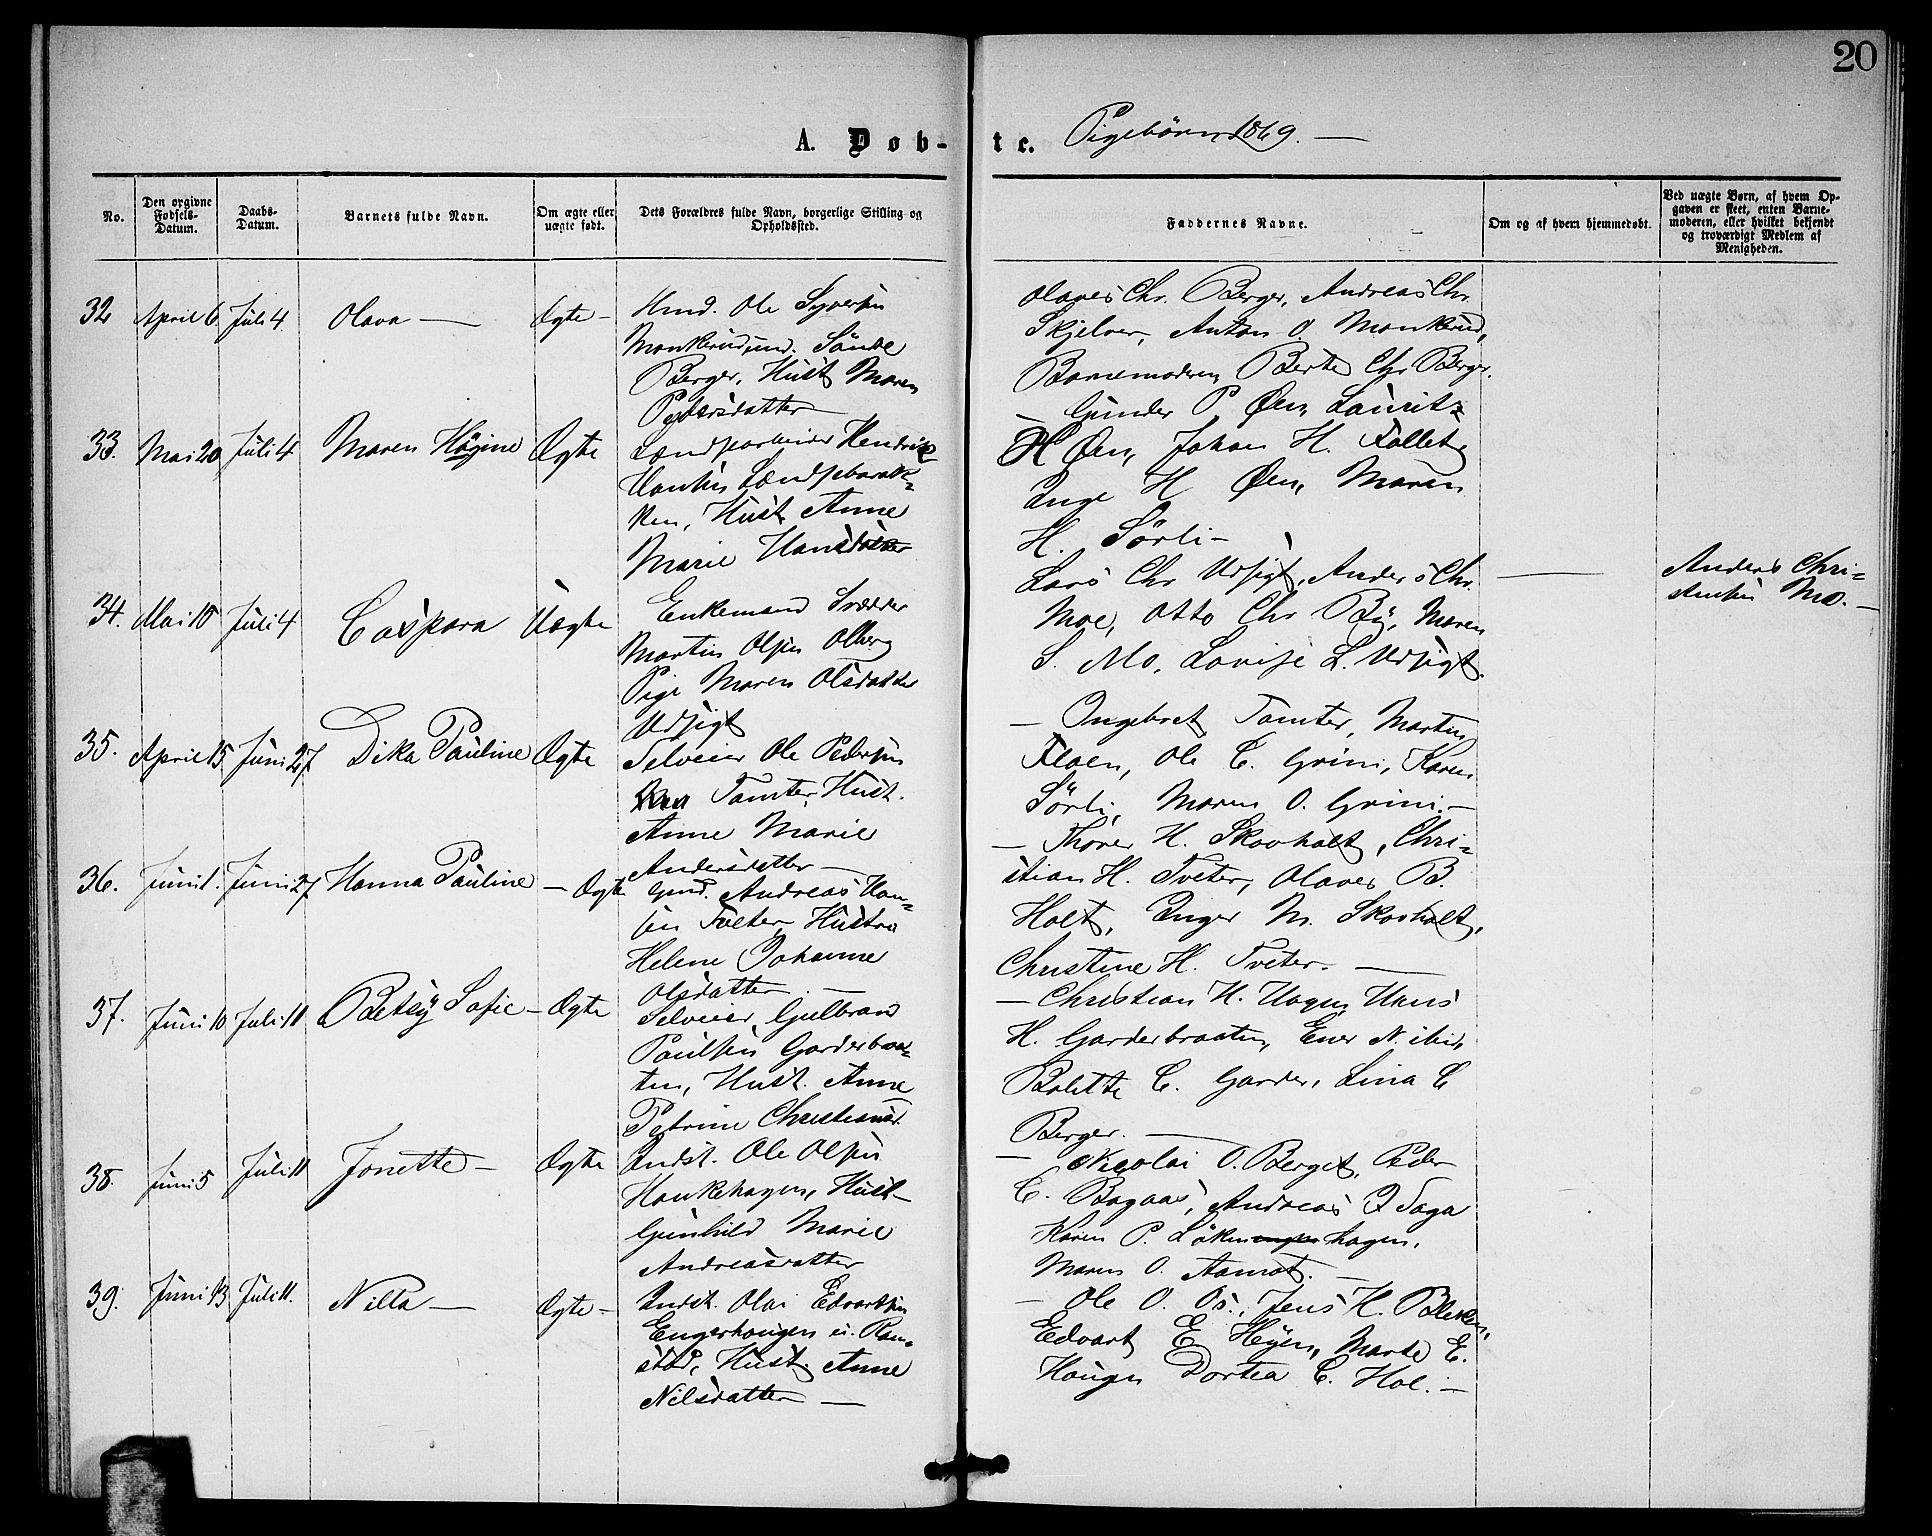 20
A. Døb-te. Pigebörn 1869. —
No.
Den opgivne
Fødsels-
Datum.
Daabs-
Datum.
Barnets fulde Navn.
Om ægte eller
uægte født.
Dets Forældres fulde Navn, borgerlige Stilling og
Opholdssted.
Faddernes Navne.
Om og af hvem hjemmedøbt.
Ved uægte Børn, af hvem Op-
gaven er skeet, enten Barne-
moderen, eller hvilket bekjendt
og troværdigt Medlem af
Menigheden.
32 April 6 Juli 4. Olava — Ægte —
Hmd. Ole Syversen
Monkerud und. Söndre
Berger, Hust Maren
Pedersdatter
Olaves Chr. Berger, Andreas Chr.
Skjelver, Anton O. Monkerud,
Barnemoderen, Berte Chr Berger.
33. Mai 20 Juli 4 Maren Hägine Ægte
Landsarbeider Hendrik
Hansen Landsebarak-
ken, Hust. Anne
Marie Hansdatter
— Gunder P. Øen, Laurits
H Øen, Johan H. Fallet,
Inge H Øen, Maren
H. Sörli —
34. Mai 10 Juli 4 Caspara Uægte
Enkemand Skrædder
Martin Olsen Olberg
Pige Maren Olsdatter
Udsigt
Lars Chr Udsigt, Anders Chr.
Moe, Otto Chr By, Maren
S. Mo, Lovise L. Udsigt.
Anders Chri-
stensen Mo. —
35. April 15 Juni 27 Dika Pauline Ægte
Selveier Ole Pedersen
Tomter, Hust.
Anne Marie
Andersdatter —
— Ongebret Tomter, Martin
Floen, Ole C. Grini, Karen
Sörli, Maren O. Grini. —
36. Juni 1. Juni 27 Hanna Pauline — Ægte
Gmd. Andreas Han-
sen Tveter, Hustru
Helene Johanne
Olsdatter —
— Thorer H. Skovholt, Chri-
stian H. Tveter, Olaves B.
Holt, Inger M. Skovholt,
Christine H. Tveter. —
37. Juni 10 Juli 11 Betsy Sofie — Ægte
Selveier Gulbrand
Paulsen Garderbraa-
ten, Hust. Anne
Petrine Christiansd.
— Christian H. Hagen, Hans
H. Garderbraaten, Ener N. ibid,
Bolette C. Garder, Lina C
Berger. —
38. Juni 5 Juli 11 Jonette — Ægte
Indst. Ole Olsen
Haukehagen, Hust —
Gunhild Marie
Andreasdatter
— Nicolai O. Berget, Peder
C. Bagaas, Andreas J Saga
Karen P. Löken hagen,
Maren O. Aamot. —
39. Juni 13 Juli 11. Nilla — Ægte —
Indst. Olai Edvartsen
Engerhougen u. Ram-
stad, Hust. Anne
Nilsdatter —
— Ole O. Os, Jens H. Bleken,
Edvart E. Höyen, Marte E.
Hougen Dortea C. Hol. —